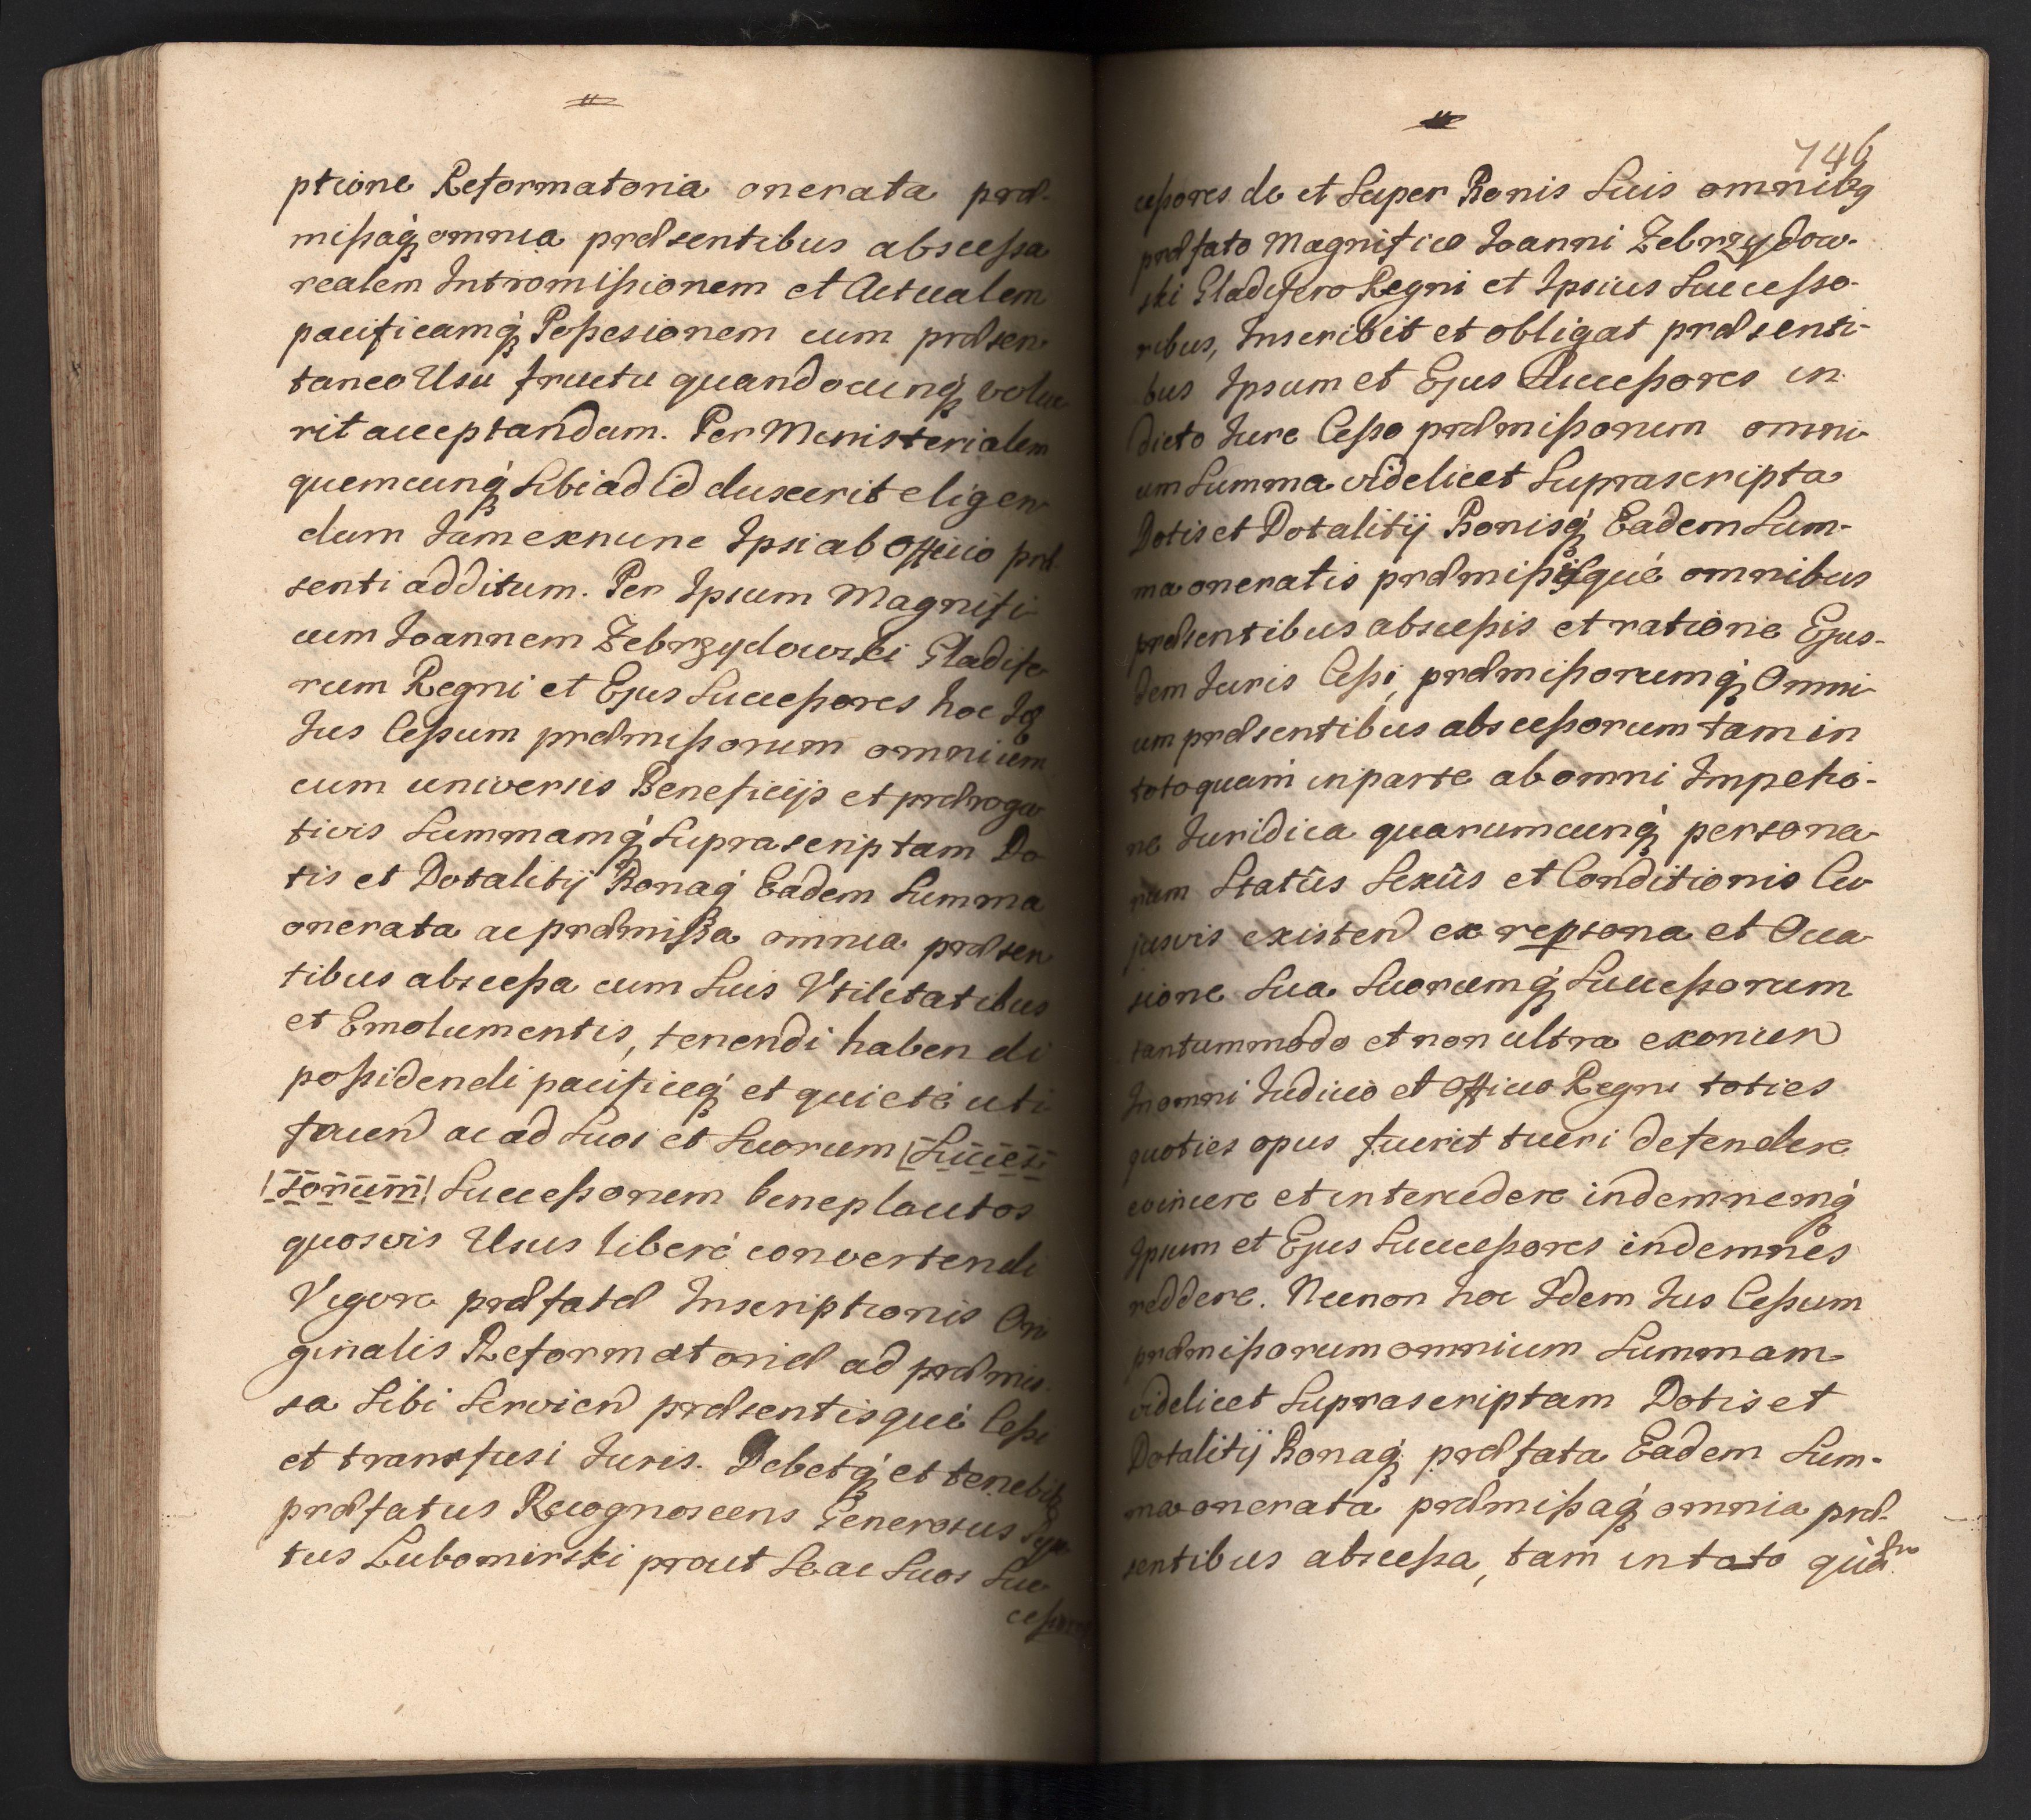 ptione Reformatoria onerata præ-
mißaq́ꝫ omnia præsentibus abscessa
realem Intromißionem et Actualem
pacificamq́ꝫ Poßesionem cum præsen
taneo Usu fructu quandocunq́ꝫ volue
rit acceptandam. Per Ministerialem
quemcunq́ꝫ Sibi ad id duxerit eligen
dum Jam exnunc Ipsi ab Officio præ
senti additum. Per Ipsum Magnifi-
cum Joannem Zebrzydowski Gladife
rum Regni et Ejus Succeßores hoc Id
Jus Ceßum præmißorum omnium
cum universis Beneficijs et præroga
tivis Summamq́ꝫ Suprascriptam Do
tis et Dotalitij Bonaq́ꝫ Eadem Summa
onerata ac præmißa omnia præsen
tibus absceßa cum Suis Vtilitatibus
et Emolumentis, tenendi habendi
poßidendi pacificeq́ꝫ et quieté uti
fruen ac ad Suos et Suorum Succes
sorum Succeßorum beneplacitos
quosvis Usus liberé convertendi
Vigore præfatæ Inscriptionis Ori
ginalis Reformatoriæ ad præmis
sa Sibi Servien præsentisqué Ceßi
et transfusi Juris. Debetq́ꝫ et tenebit
præfatus Recognoscens Generosus
tus Lubomirski prout Se ac Suos Suc
ceßores
746
ceßores de et Super Bonis Suis omnibꝫ
præfato Magnifico Joanni Zebrzydow-
ski Gladifero Regni et Ipsius Successo-
ribus, Inscribit et obligat præsenti-
bus Ipsum et Ejus Succeßores in
dicto Jure Ceßo præmißorum omni
um Summa videlicet Suprascripta
Dotis et Dotalitij Bonisq́ꝫ Eadem Sum-
ma oneratis præmißisqué omnibus
præsentibus absceßis et ratione Ejus-
dem Juris Ceßi, præmißorumq́ꝫ Omni
um præsentibus absceßorum tam in
toto quam in parte ab omni Impetio-
ne Juridica quarumcunq́ꝫ persona
rum Statûs Sexûs et Conditionis Cu
jusvis existen ex re persona et Occa
sione Sua Suorumq́ꝫ Succeßorum
tantummodo et non ultra exonien
In omni Judicio et Officio Regni toties
quoties opus fuerit tueri defendere
evincere et intercedere indemnemq́ꝫ
Ipsum et Ejus Succeßores indemnes
reddere. Necnon hoc Idem Jus Ceßum
præmißorum omnium Summam
videlicet Suprascriptam Dotis et
Dotalitij Bonaq́ꝫ præfata Eadem Sum-
ma onerata præmißaq́ꝫ omnia præ-
sentibus absceßa, tam in toto quam